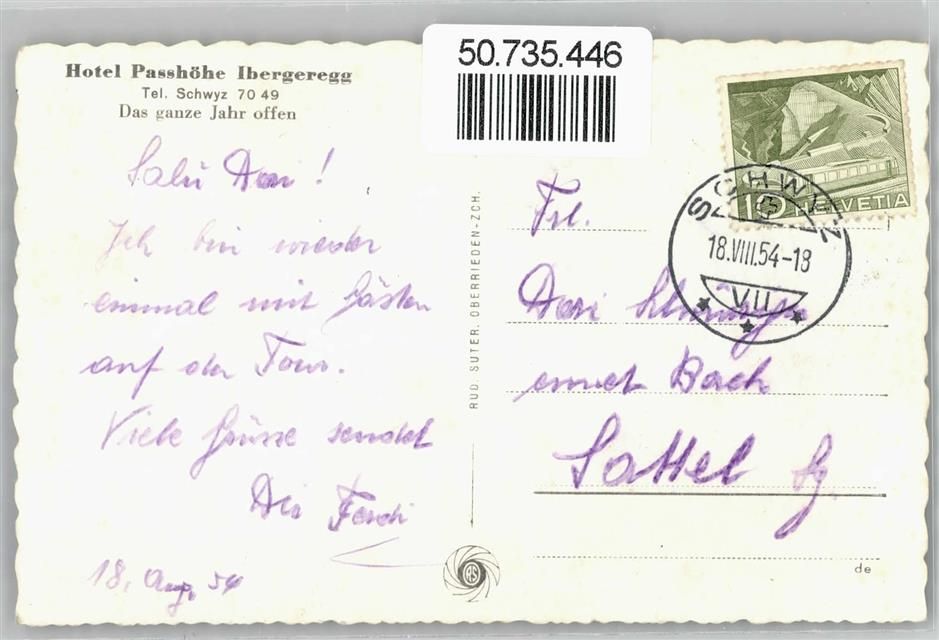 50.735.446
Hotel Passhöhe Ibergeregg
Tel. Schwyz 70 49
Das ganze Jahr offen
Salü Dori!
Ich bin wieder
einmal mit Gästen
auf der Tour.
Viele Grüsse sendet
Dir Ferdi
18. Aug. 54
RUD. SUTER, OBERRIEDEN-ZCH.
RS
10 HELVETIA
SCHWYZ
18.VIII.54-18
VII
Frl.
Dori
ennet Bach
Sattel Sz.
de